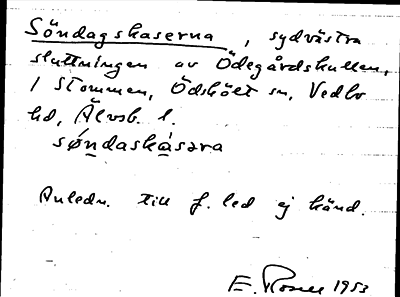 Söndagskaserna, sydvästra
sluttningen av Ödegårdskullen,
1 Stommen, Ödskölt sn, Vedbo
hd, Älvsb. l.
sǿndaskàsəra
Anledn. till f. led ej känd.
E. Rosell 1953